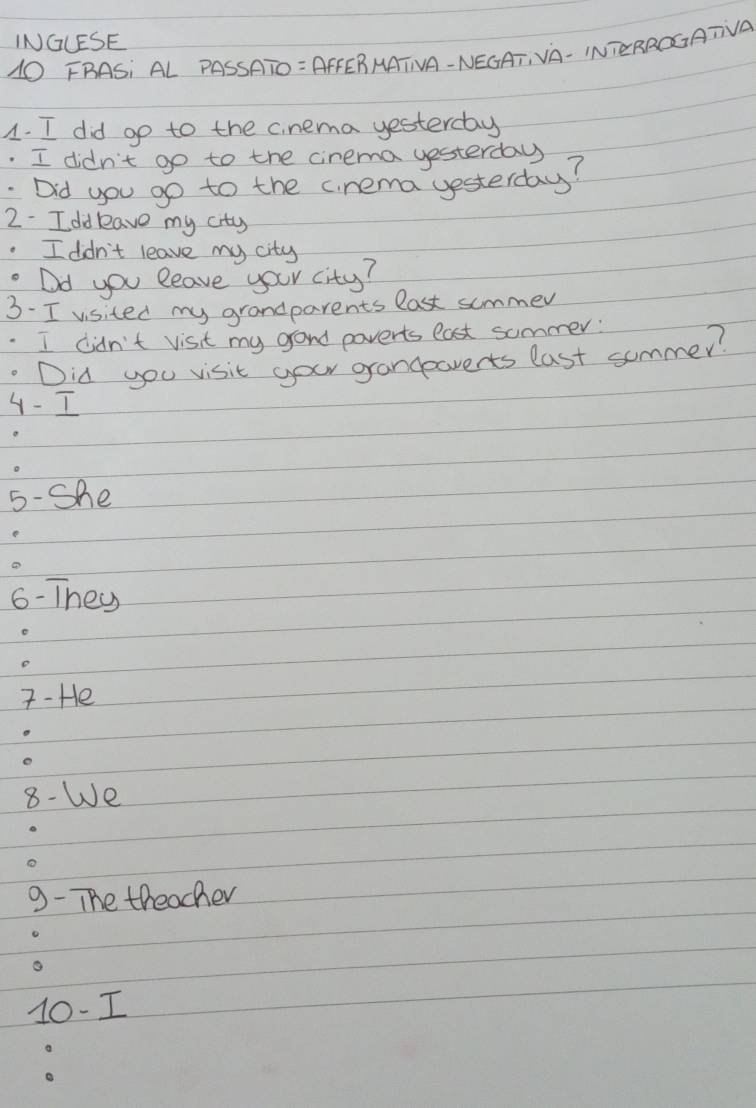 INGLESE
10 FRASi AL PASSATO = AFFERMATIVA - NEGATIVA - INTERROGATIVA
1 - I did go to the cinema yesterday
• I didn't go to the cinema yesterday
• Did you go to the cinema yesterday?
2 - I did leave my city
• I didn't leave my city
• Did you leave your city?
3 - I visited my grandparents last summer
• I didn't visit my grand parents last summer.
• Did you visit your grandparents last summer?
4 - I
•
•
5 - She
•
•
6 - They
•
•
7 - He
•
•
8 - We
•
•
9 - The theacher
•
•
10 - I
•
•